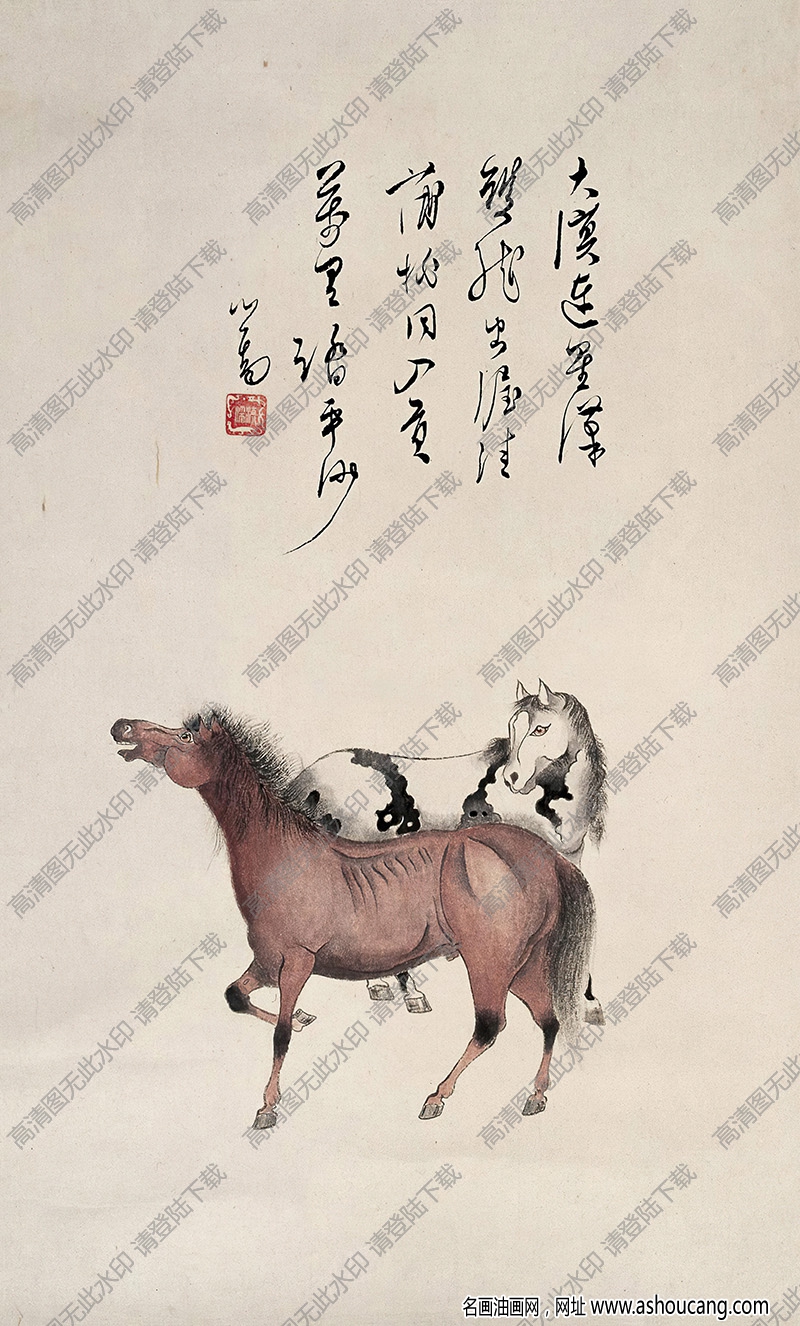 大漠連星漢
雙龍出渥洼
蒲梢同入貢
萬里踏平沙
心畬
高清图无此水印 请登陆下载
名画油画网，网址 www.ashoucang.com